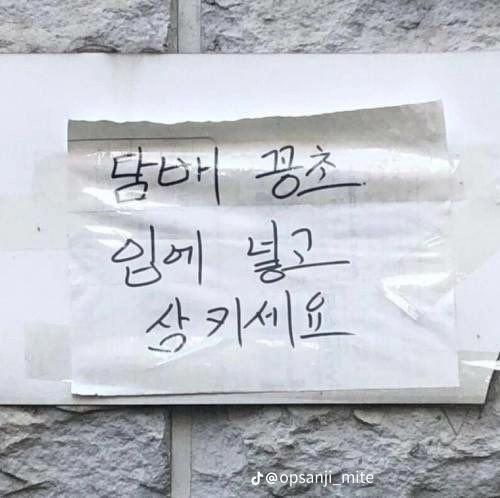 담배 꽁초
입에 넣고
삼키세요
@opsanji_mite